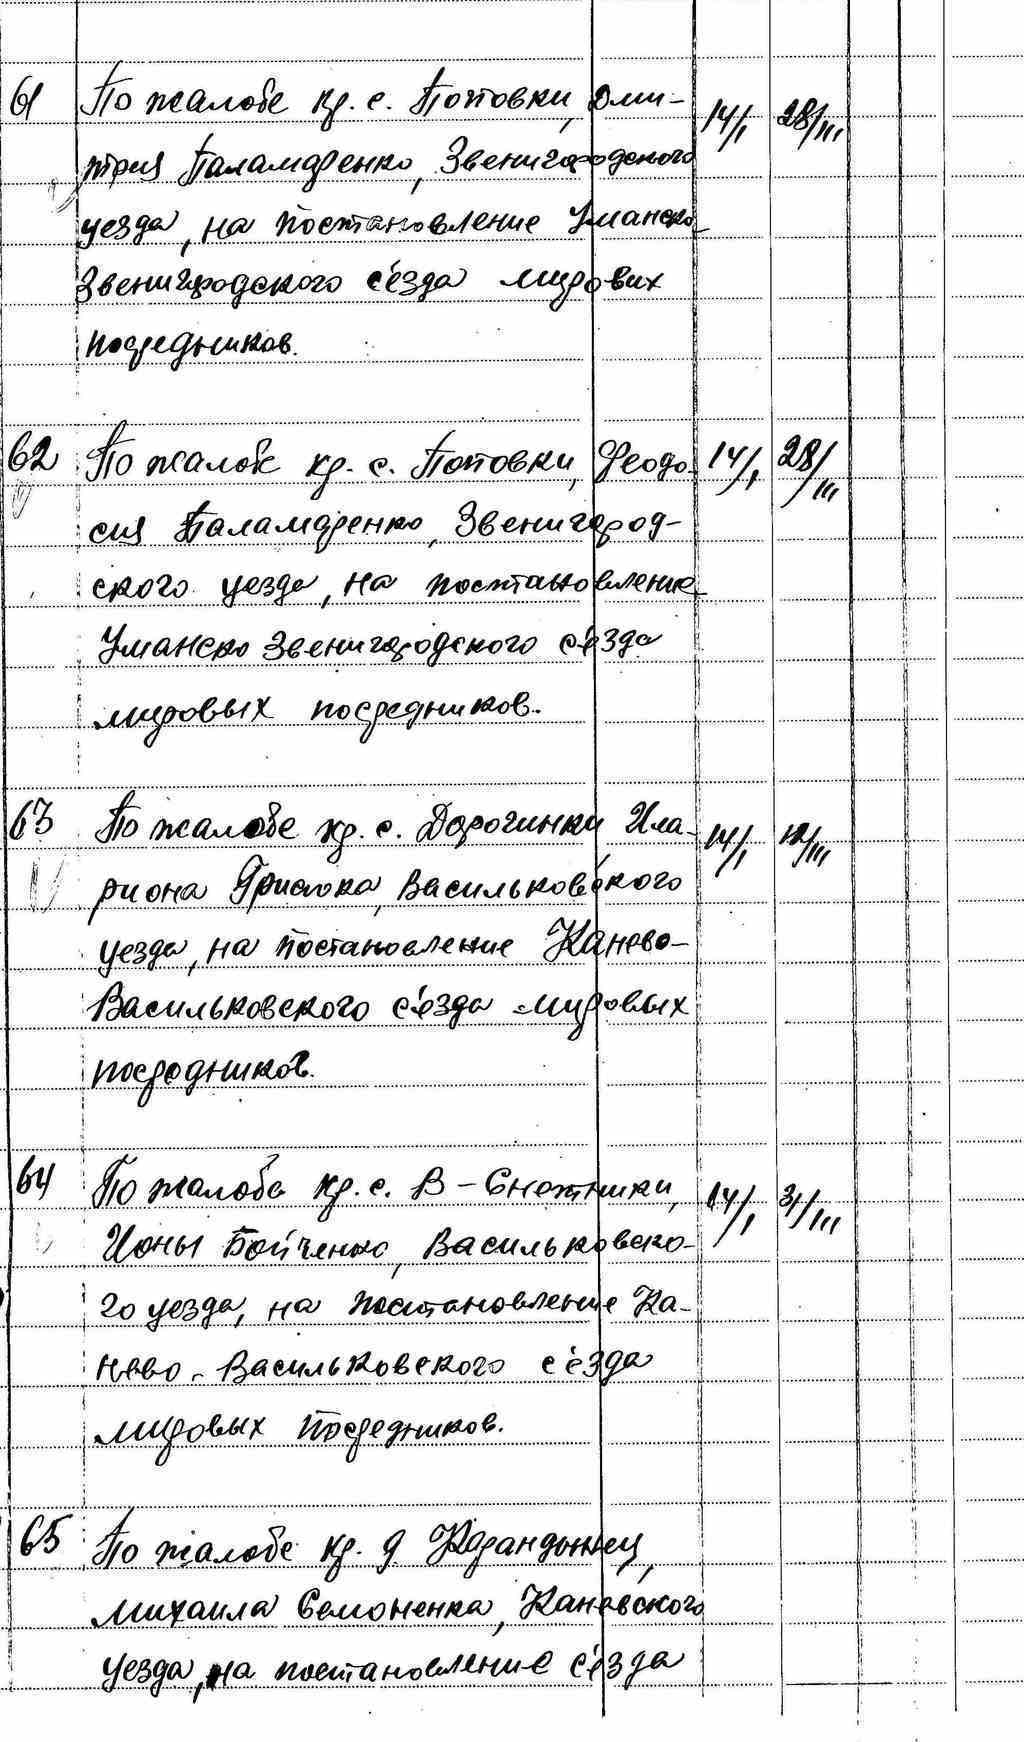 61 По жалобе кр. с. Поповки, Дми-
трия Паламаренко, Звенигородского 14/I 28/III
уезда, на постановление Уманско-
Звенигородского с'езда мирових
посредников.
62 По жалобе кр. с. Поповки, Феодо- 14/I 28/III
сия Паламаренко, Звенигород-
ского уезда, на постановление
Уманско Звенигородского с'езда
мировых посредников.
63 По жалобе кр. с. Дорогинки Ила- 14/I 12/III
риона Васильковского
уезда, на постановление Канево-
Васильковского с'езда мировых
посредников.
64 По жалобе кр. с. В-Снетинки, 14/I 31/III
Ионы Бойченко, Васильковско-
го уезда, на постановление Ка-
нево-Васильковского с'езда
мировых посредников.
65 По жалобе кр. д.
Михаила Семоненка, Каневского
уезда, на постановление с'езда